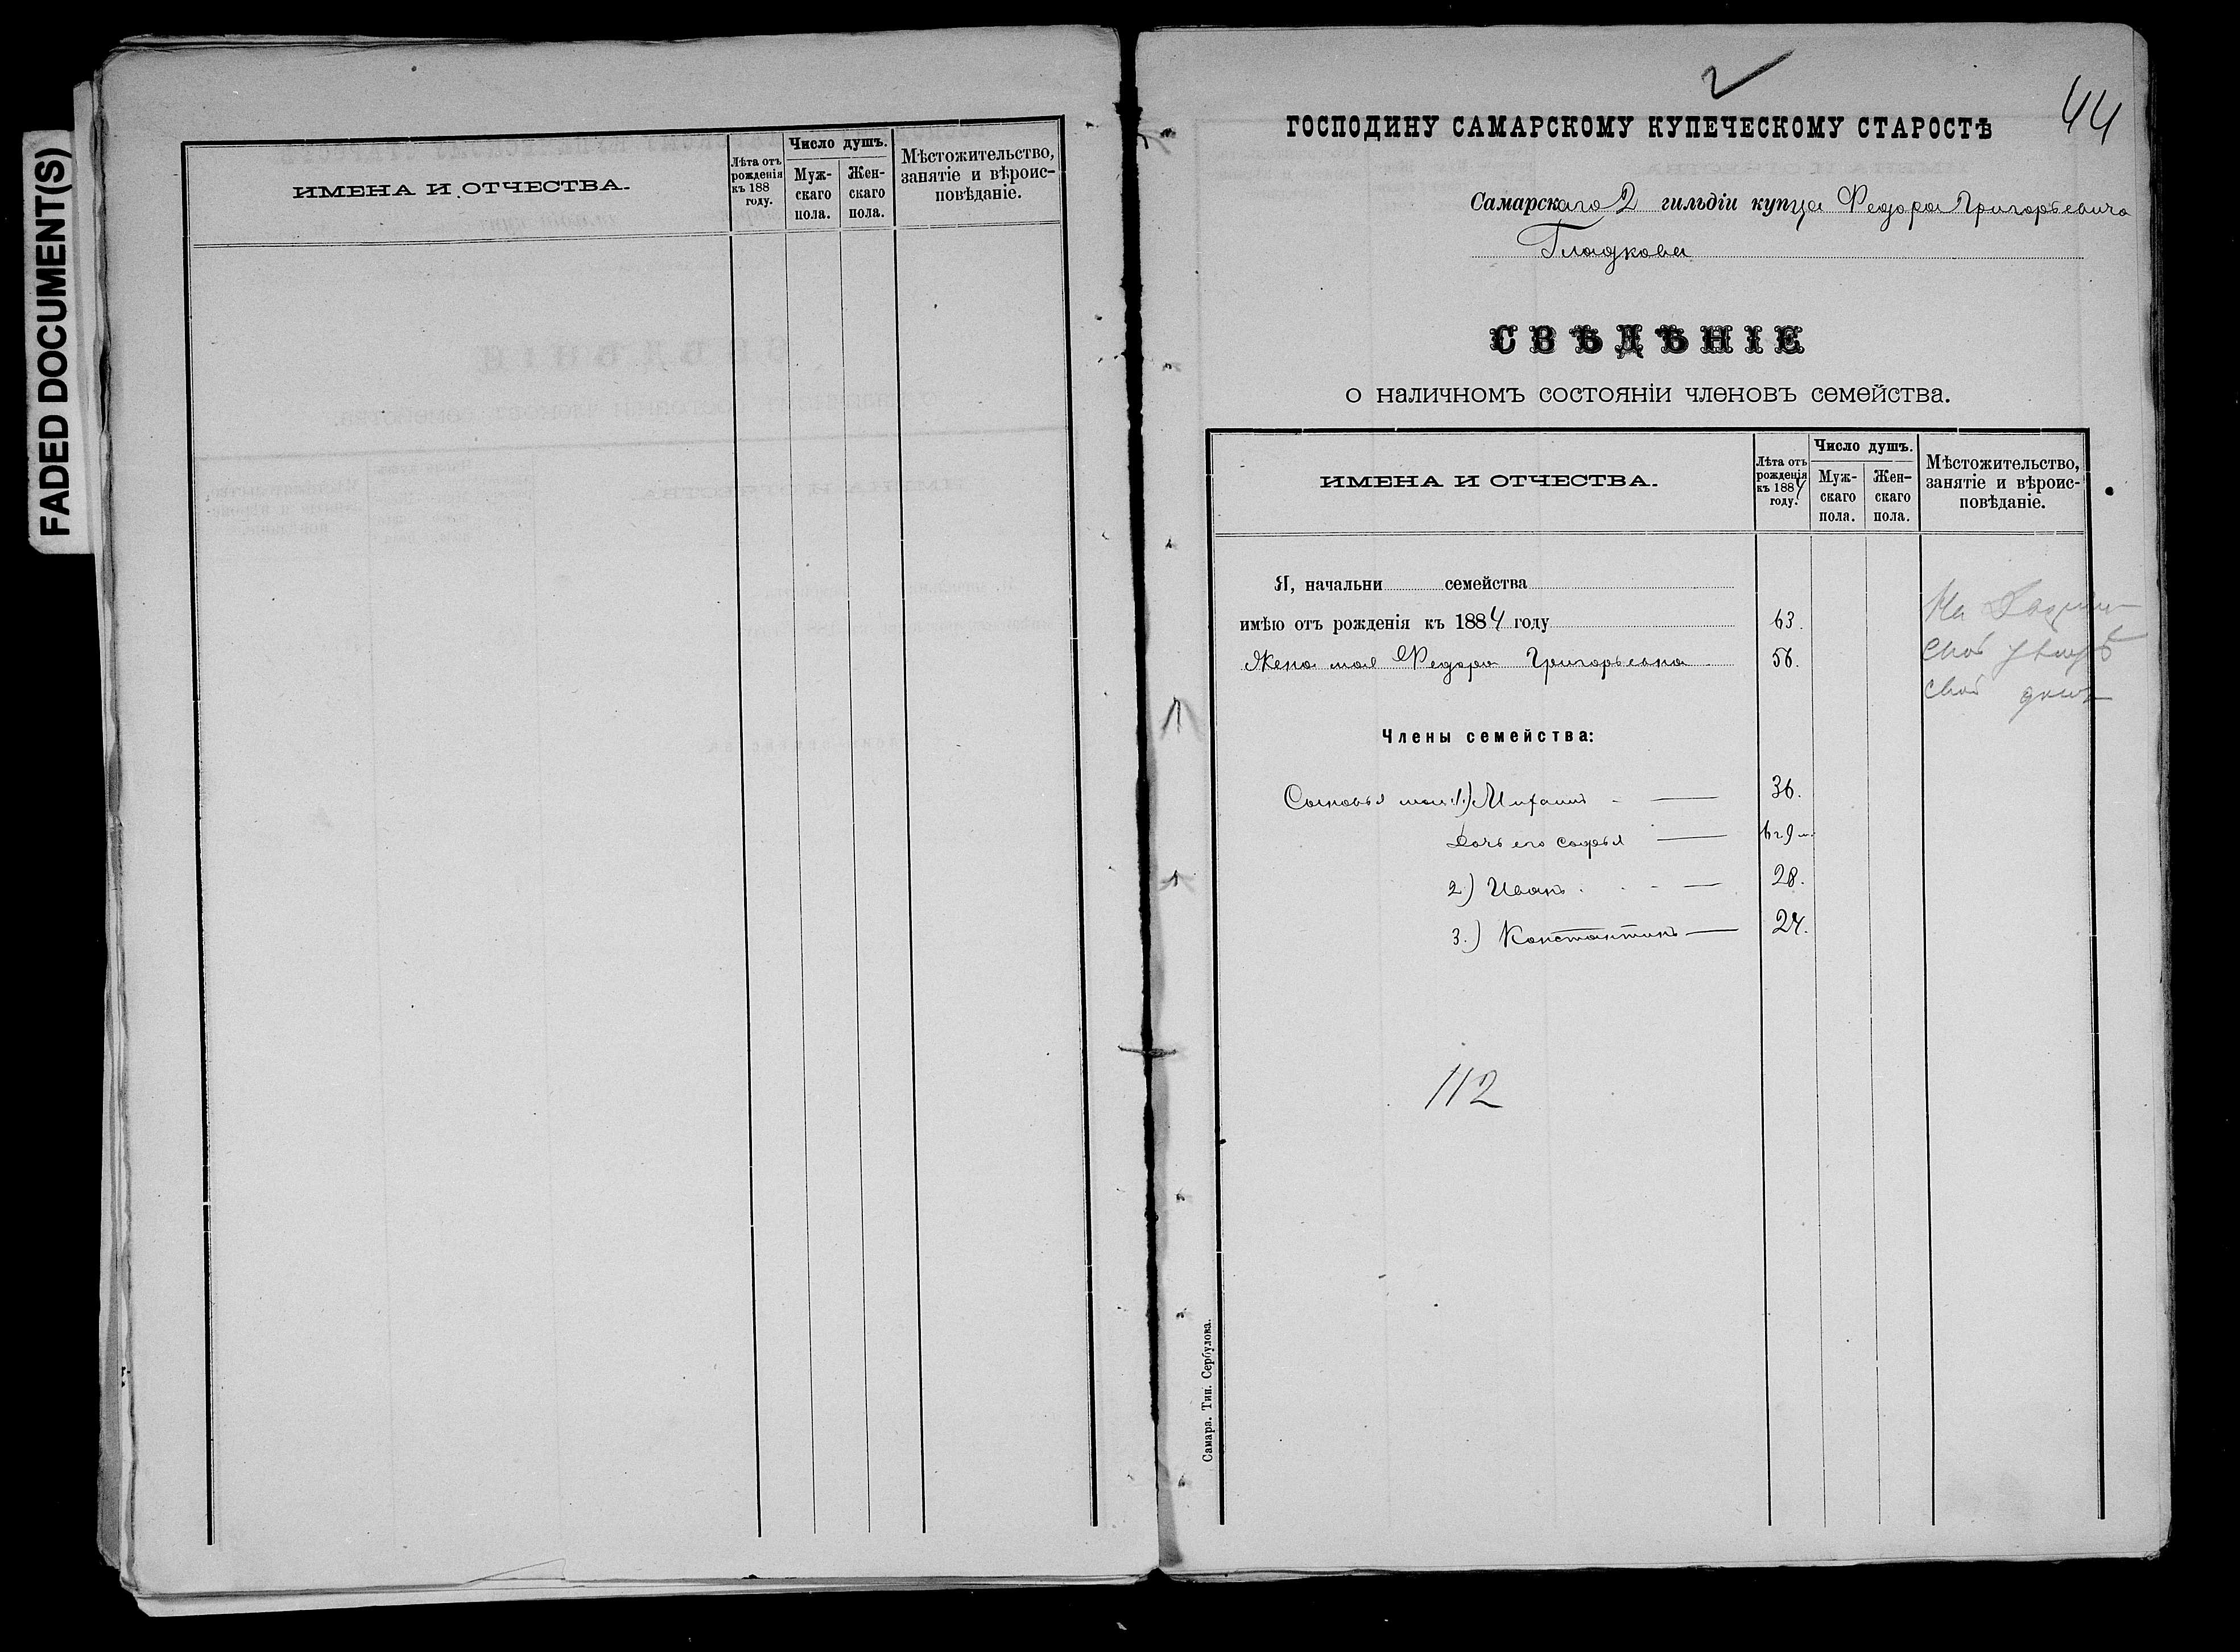 FADED DOCUMENT(S)
ИМЕНА И ОТЧЕСТВА.
Лѣта отъ рожденія къ 188 году.
Число душъ.
Муж-скаго пола.
Жен-скаго пола.
Мѣстожительство, занятіе и вѣроис-повѣданіе.
44
ГОСПОДИНУ САМАРСКОМУ КУПЕЧЕСКОМУ СТАРОСТѢ
Самарскаго 2 гильдіи купца Федора Григорьевича
Гладкова
СВѢДѢНІЕ
о наличномъ состояніи членовъ семейства.
ИМЕНА И ОТЧЕСТВА.
Лѣта отъ рожденія къ 1884 году.
Число душъ.
Муж-скаго пола.
Жен-скаго пола.
Мѣстожительство, занятіе и вѣроис-повѣданіе.
Я, начальни семейства
имѣю отъ рожденія къ 1884 году 63.
Жена моя Федора Григорьевна 56.
На
свой
свой домъ
Члены семейства:
Сыновья мои: 1.) Михаилъ 36.
Дочь его Софья 6 г. 9 м.
2.) Иванъ 28.
3.) Константинъ 24.
112
Самара. Тип. Сербулова.